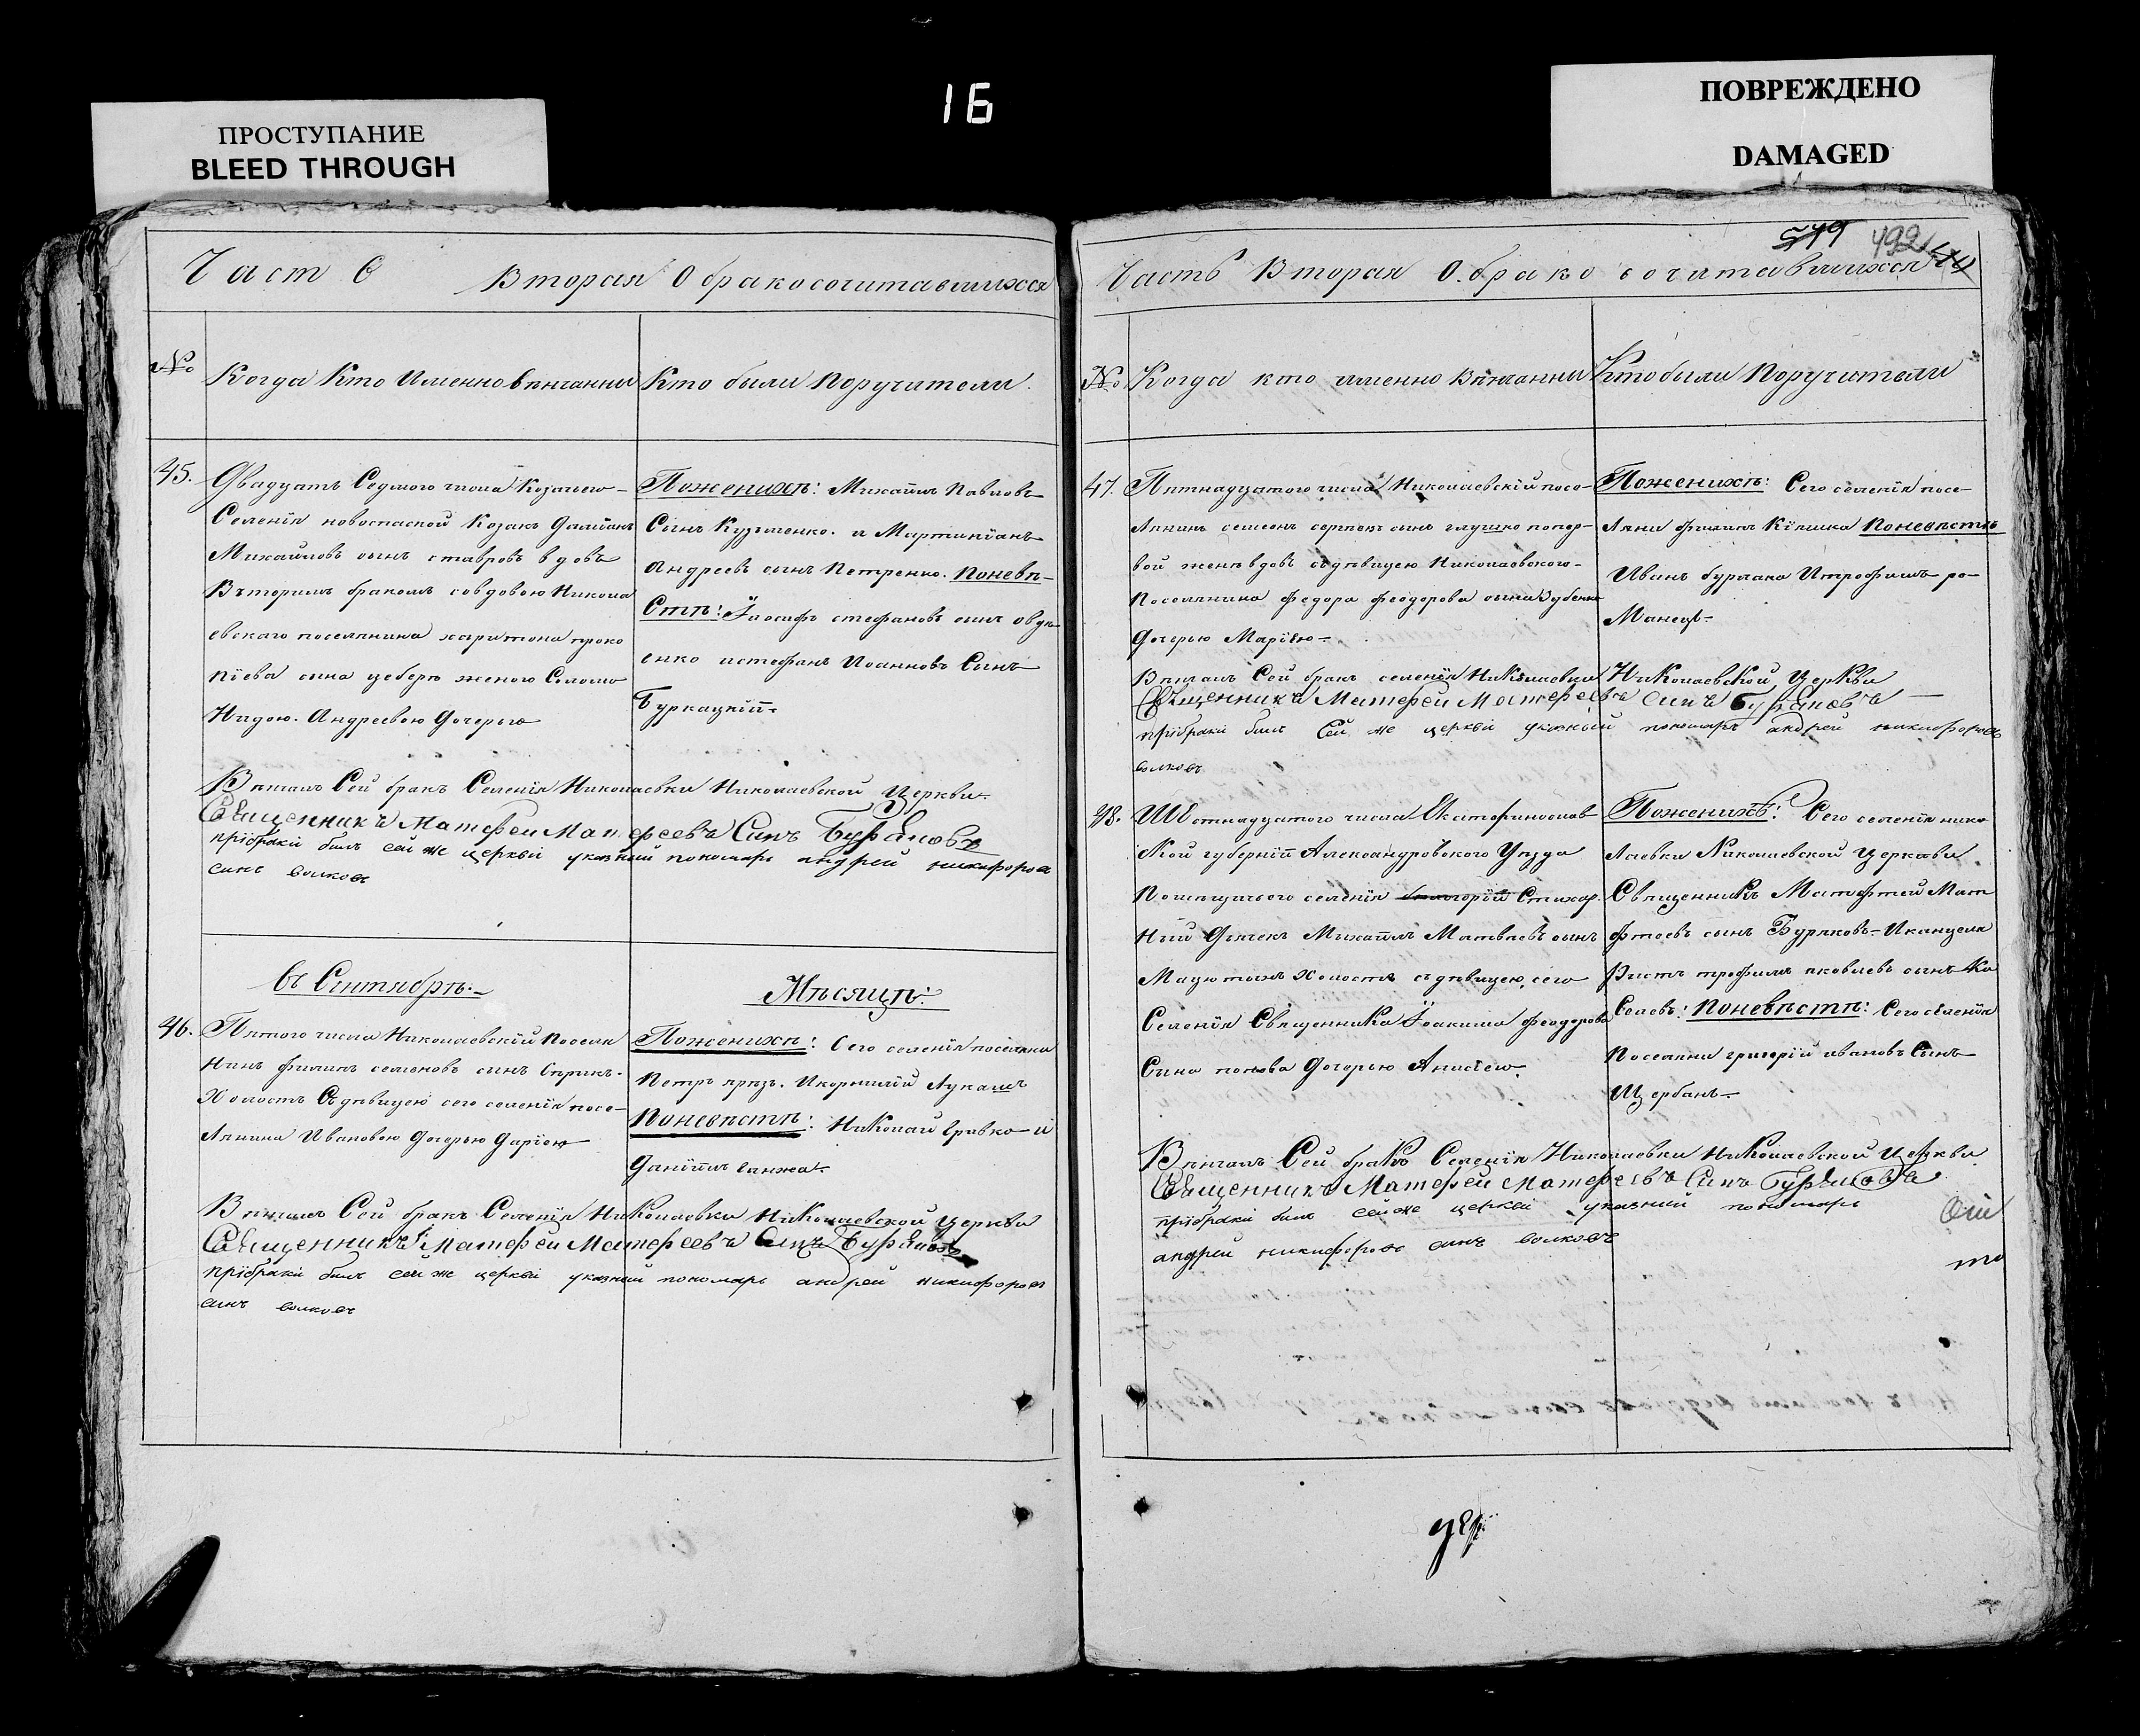 16
ПРОСТУПАНИЕ
BLEED THROUGH
ПОВРЕЖДЕНО
DAMAGED
Часть Вторая О бракосочитавшихся
№ Когда Кто Именно вѣнчанны Кто были Поручители.
45. Двадцать Седмого числа Козачьего
Селенія новоспаской Козакъ Даміанъ
Михайловъ сынъ ставровъ вдовъ
Вторимъ бракомъ совдовою Никола
евскаго поселянина харитона проко
піева сына цебера женою Соломо
Нидою. Андреевою Дочерью
Поженихѣ: Михаилъ Павловъ
Сынъ Кузменко. и Мартиніанъ
Андреевъ сынъ Петренко. Поневѣ-
Стѣ: Іосифъ стефановъ сынъ овдѣ
енко истефанъ Иоанновъ Сынъ
Буркацкій.
Вѣнчалъ Сей бракъ Селенія Николаевки Николаевской Церкви.
Священникъ Матфей Матфеевъ Синъ Буряковъ
прібракѣ билъ сей же церкві указний пономаръ андрей никифоровъ
синъ волковъ
въ Сентябрѣ: Мѣсяцѣ:
46. Пятого числа Николаевскій Поселя
Нинъ филипъ семеновъ сынъ
Холостъ Съдѣвицею сего селенія посе-
Лянина Ивановою Дочерью Даріею
Поженихѣ: Сего селенія поселяни
Петръ Икорнилій Лукашъ
Поневѣстѣ: Николай Гривко и
Даніилъ ганжа.
Вѣнчалъ Сей бракъ Селенія Николаевки Николаевской Церкви
Священникъ Матфей Матфеевъ Синъ Буряковъ
прібракѣ билъ сей же церкві указний пономаръ андрей никифоровъ
синъ волковъ
519 492
Часть Вторая О бракосочитавшихся
№ Когда кто именно Вѣнчанны Кто были Поручители
47. Пятнадцатого числа Николаевскій посе-
Лянинъ семеонъ сынъ глушко попер-
вой женѣ вдовъ съдѣвицею Николаевского
Поселянина федора феодорова сына Зубенка
Дочерью Маріею
Поженихѣ: Сего селенія посе-
Ляни филипъ Кіяшка Поневѣстѣ
Иванъ бурлака Итрофимъ ро-
Манец
Вѣнчалъ Сей бракъ селенія Николаевки Николаевской Церкви
Священникъ Матфей Матфеевъ Синъ Буряковъ
прібракѣ билъ Сей же церкві указный пономаръ андрей никифоровъ
волковъ
48. Шестнадцатого числа Екатеринослав-
ской губерніи Александровского Уѣзда
селенія Стихар.
Ный Дьячекъ Михаилъ Матвѣевъ сынъ
холостъ съдѣвицею, сего
Селенія Священника Іоакима феодорова
Сына попова Дочерью Анисіею.
Поженихѣ: Сего селенія нико
Лаевки Николаевской Церкви
Священникъ Матфтей Мат
фтеевъ сынъ Буряковъ Иканцеля
Ристъ трофимъ яковлевъ сынъ Ко
Селевъ: Поневѣстѣ: Сего селенія
Поселяни григорій ивановъ Сынъ
Щербань
Вѣнчалъ Сей бракъ Селенія Николаевки Николаевской Церкви.
Священникъ Матфей Матфеевъ Синъ Буряковъ
прібракѣ билъ сей же церкві указний пономаръ
андрей никифоровъ синъ волковъ